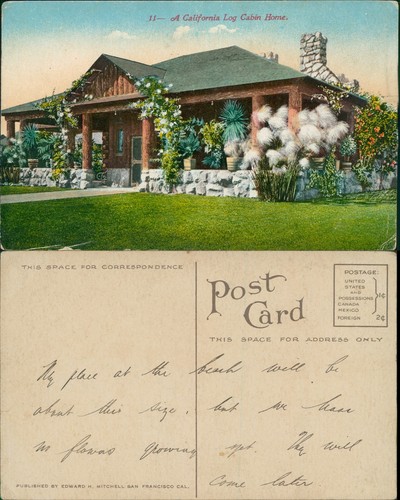 11— A California Log Cabin Home.
THIS SPACE FOR CORRESPONDENCE
Post Card
POSTAGE:
UNITED STATES AND POSSESSIONS
CANADA
MEXICO
1¢
FOREIGN 2¢
THIS SPACE FOR ADDRESS ONLY
My place at the beach will be
about this size, but we have
no flowers growing yet. They will
come later.
PUBLISHED BY EDWARD H. MITCHELL SAN FRANCISCO CAL.